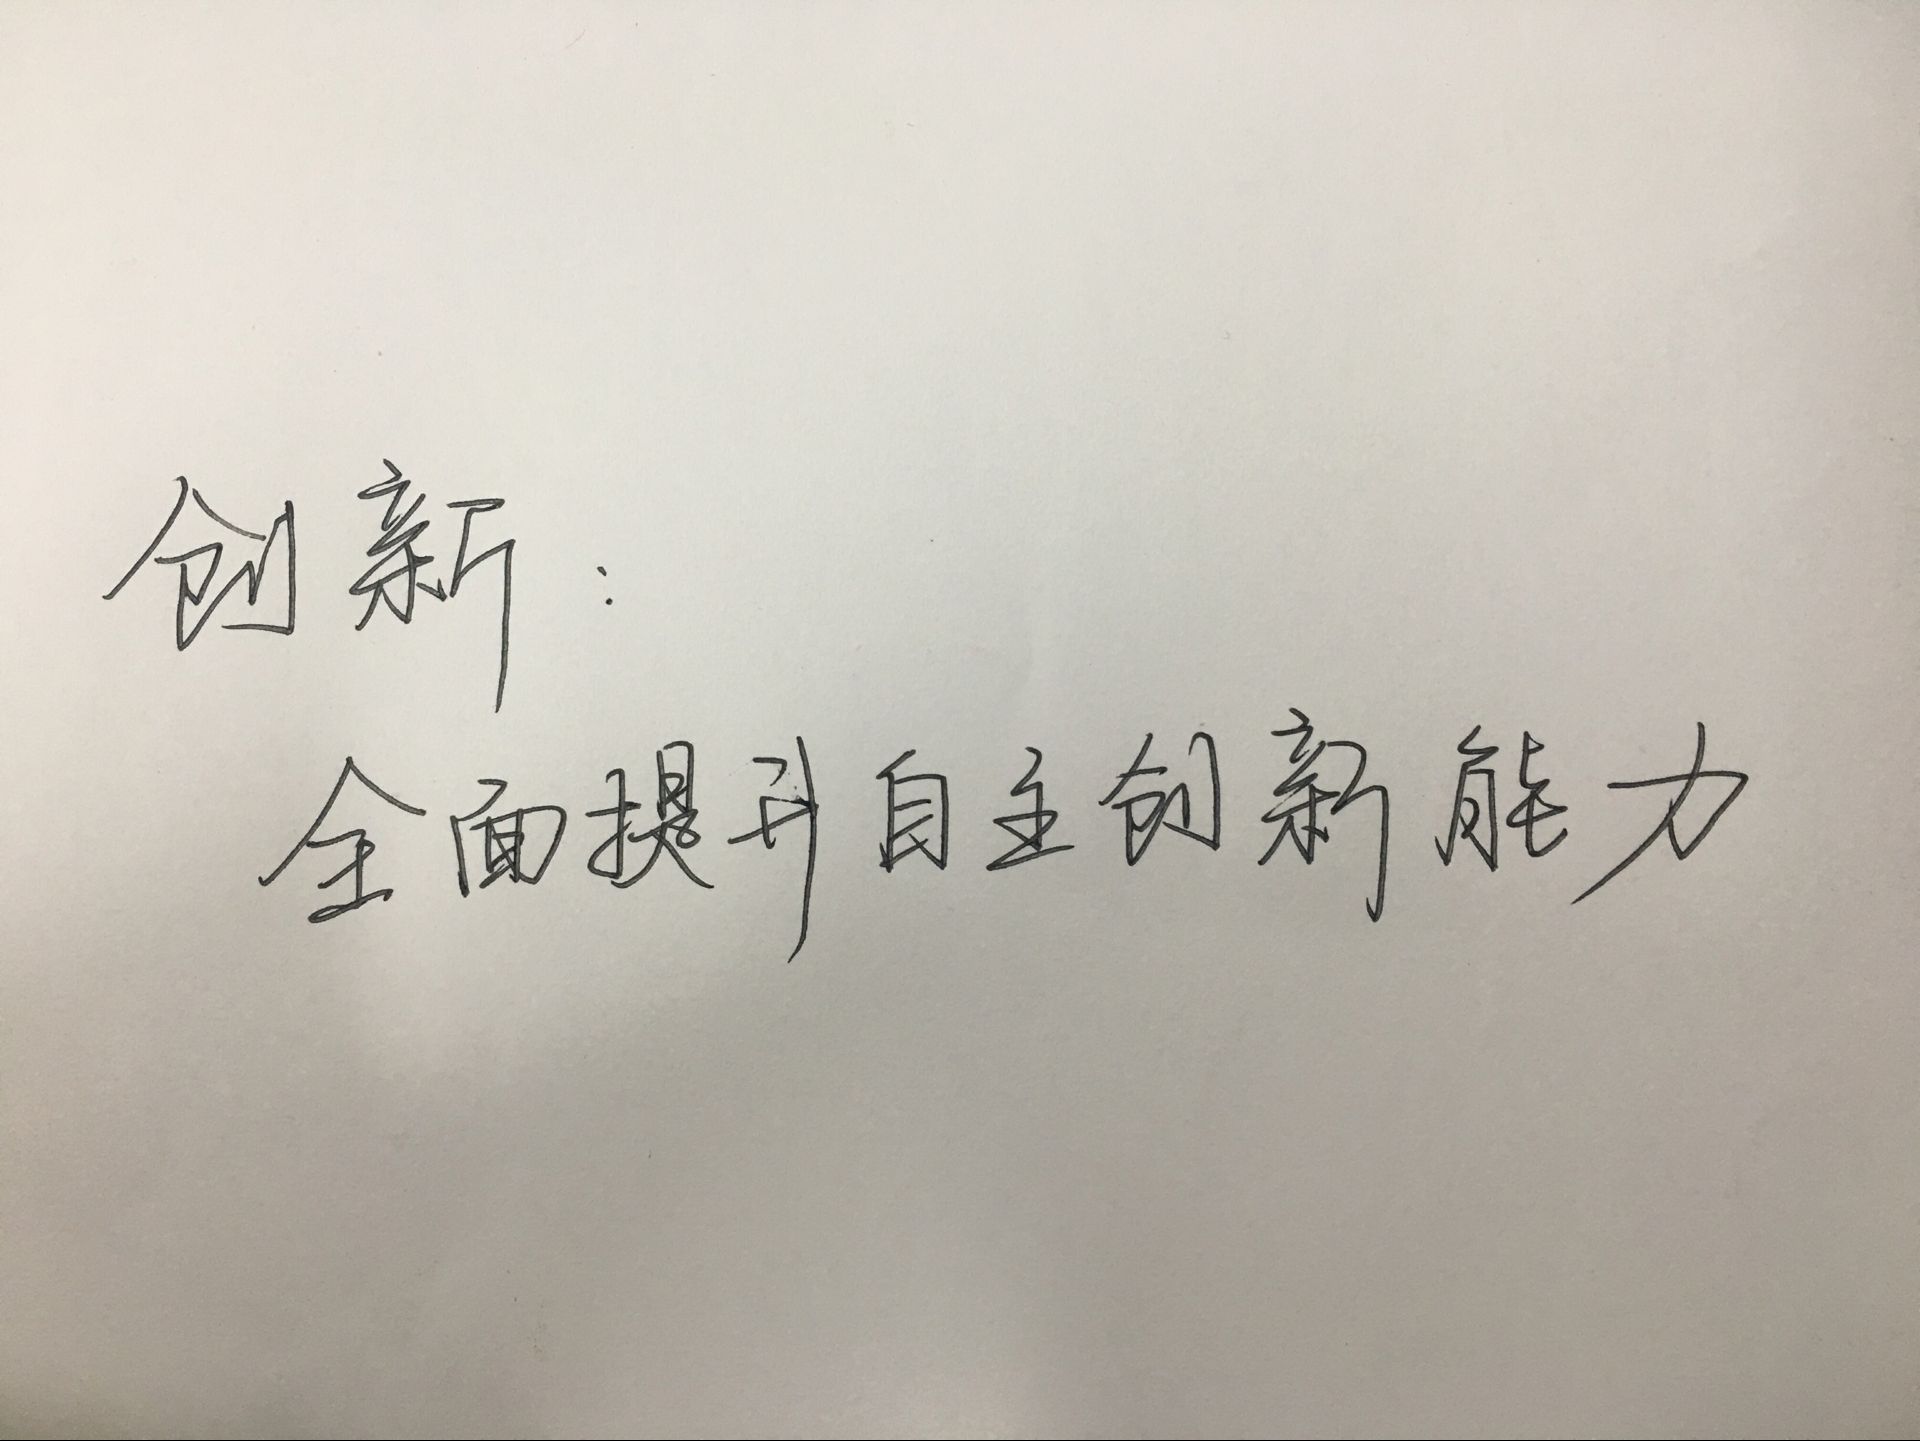 创新：
全面提升自主创新能力